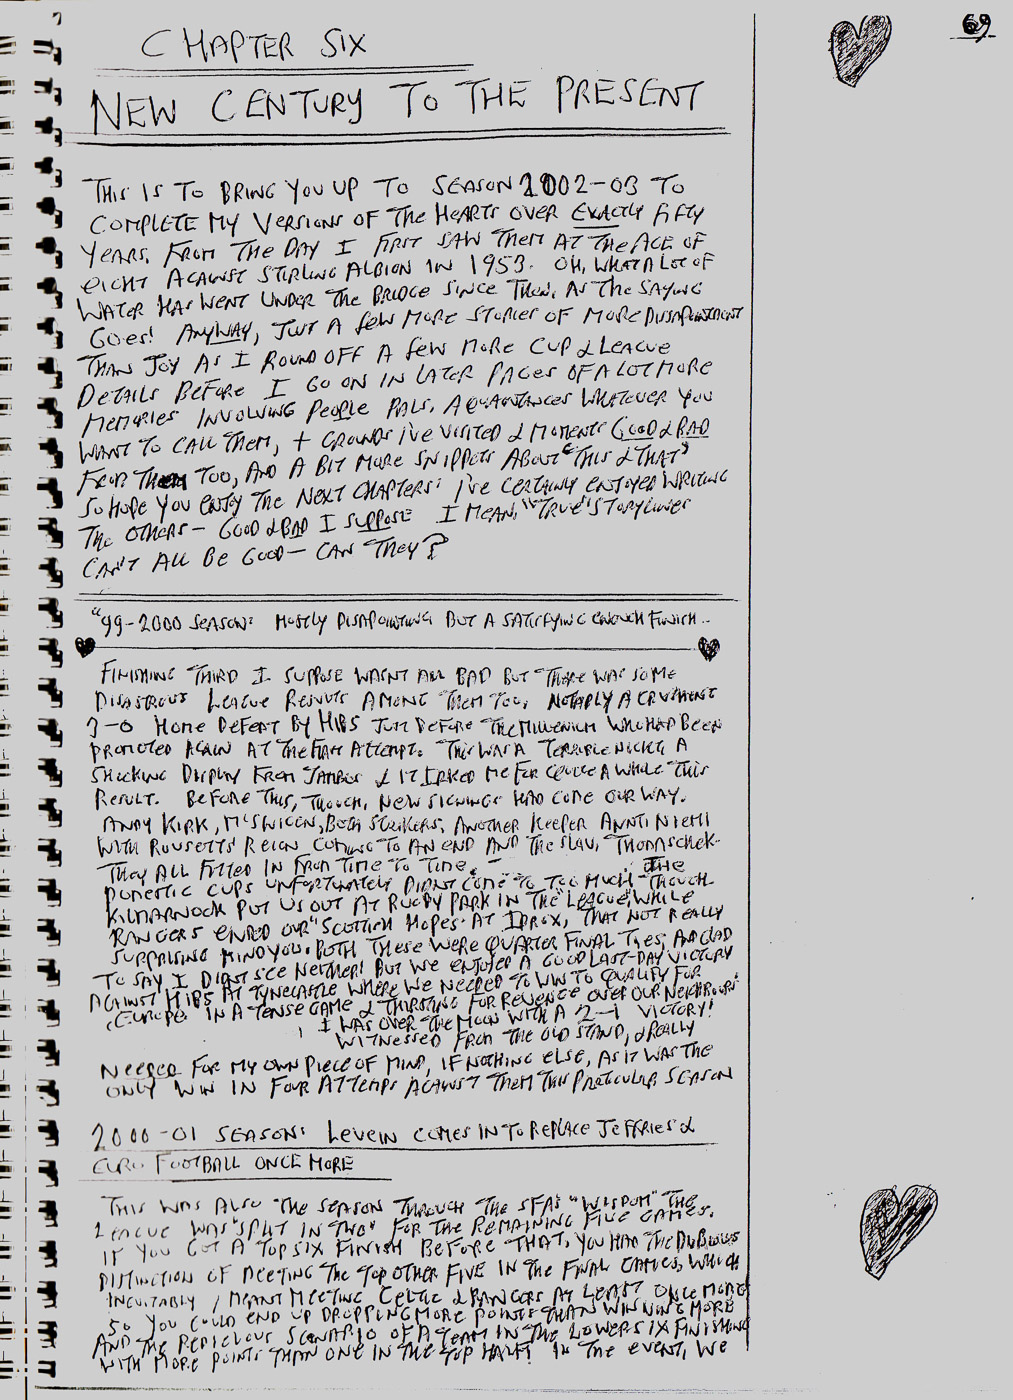 69
CHAPTER SIX
NEW CENTURY TO THE PRESENT
THIS IS TO BRING YOU UP TO SEASON 2002-03 TO
COMPLETE MY VERSIONS OF THE HEARTS OVER EXACTLY FIFTY
YEARS. FROM THE DAY I FIRST SAW THEM AT THE AGE OF
EIGHT AGAINST STIRLING ALBION IN 1953. OH, WHAT A LOT OF
WATER HAS WENT UNDER THE BRIDGE SINCE THEN, AS THE SAYING
GOES! ANYWAY, JUST A FEW MORE STORIES OF MORE DISSAPOINTMENT
THAN JOY AS I ROUND OFF A FEW MORE CUP & LEAGUE
DETAILS BEFORE I GO ON IN LATER PAGES OF A LOT MORE
MEMORIES INVOLVING PEOPLE PALS, AQUAINTANCES WHATEVER YOU
WANT TO CALL THEM, + GROUNDS I'VE VISITED & MOMENTS GOOD & BAD
FROM THEM TOO, AND A BIT MORE SNIPPETS ABOUT "THIS & THAT"
SO HOPE YOU ENJOY THE NEXT CHAPTERS: I'VE CERTAINLY ENJOYED WRITING
THE OTHERS - GOOD & BAD I SUPPOSE I MEAN, "TRUE" STORYLINES
CAN'T ALL BE GOOD - CAN THEY?
"99-2000 SEASON: MOSTLY DISAPOINTING BUT A SATISFYING ENOUGH FINISH..
FINISHING THIRD I SUPPOSE WASNT ALL BAD BUT THERE WAS SOME
DISASTROUS LEAGUE RESULTS AMONG THEM TOO, NOTABLY A
3-0 HOME DEFEAT BY HIBS JUST BEFORE THE MILLENIUM WHO HAD BEEN
PROMOTED AGAIN AT THE FIRST ATTEMPT. THIS WAS A TERRIBLE NIGHT & A
SHOCKING DISPLAY FROM JAMBOS & IT IRKED ME FOR QUITE A WHILE THIS
RESULT. BEFORE THIS, THOUGH, NEW SIGNINGS HAD COME OUR WAY.
ANDY KIRK, McSWEGEN, BOTH STRIKERS, ANOTHER KEEPER ANNTI NIEMI
WITH ROUSETTS REIGN COMING TO AN END AND THE SLAV, THOMASCHEK-
THEY ALL FITTED IN FROM TIME TO TIME. - THE
DOMESTIC CUPS UNFORTUNATELY DIDNT COME TO TOO MUCH THOUGH
KILMARNOCK PUT US OUT AT RUGBY PARK IN THE "LEAGUE" WHILE
RANGERS ENDED OUR "SCOTTISH HOPES" AT IBROX, THAT NOT REALLY
SURPRISING MIND YOU. BOTH THESE WERE QUARTER FINAL TIES, AND GLAD
TO SAY I DIDNT SEE NEITHER! BUT WE ENJOYED A GOOD LAST-DAY VICTORY
AGAINST HIBS AT TYNECASTLE WHERE WE NEEDED TO WIN TO QUALIFY FOR
EUROPE IN A TENSE GAME & THIRSTING FOR REVENGE OVER OUR NEIGHBOURS
I WAS OVER THE MOON WITH A 2-1 VICTORY!
WITNESSED FROM THE OLD STAND, & REALLY
NEEDED FOR MY OWN PIECE OF MIND, IF NOTHING ELSE, AS IT WAS THE
ONLY WIN IN FOUR ATTEMPS AGAINST THEM THIS PARTICULAR SEASON
2000-01 SEASON: LEVEIN COMES IN TO REPLACE JEFFRIES &
EURO FOOTBALL ONCE MORE
THIS WAS ALSO THE SEASON THROUGH THE SFA'S "WISDOM" THE
LEAGUE WAS "SPLIT IN TWO" FOR THE REMAINING FIVE GAMES.
IF YOU GOT A TOP SIX FINISH BEFORE THAT, YOU HAD THE DUBIOUS
DISTINCTION OF MEETING THE TOP OTHER FIVE IN THE FINAL GAMES, WHICH
INEVITABLY MEANT MEETING CELTIC & RANGERS AT LEAST ONCE MORE
SO YOU COULD END UP DROPPING MORE POINTS THAN WINNING MORE
AND THE REDICLOUS SCENARIO OF A TEAM IN THE LOWER SIX FINISHING
WITH MORE POINTS THAN ONE IN THE TOP HALF! IN THE EVENT, WE